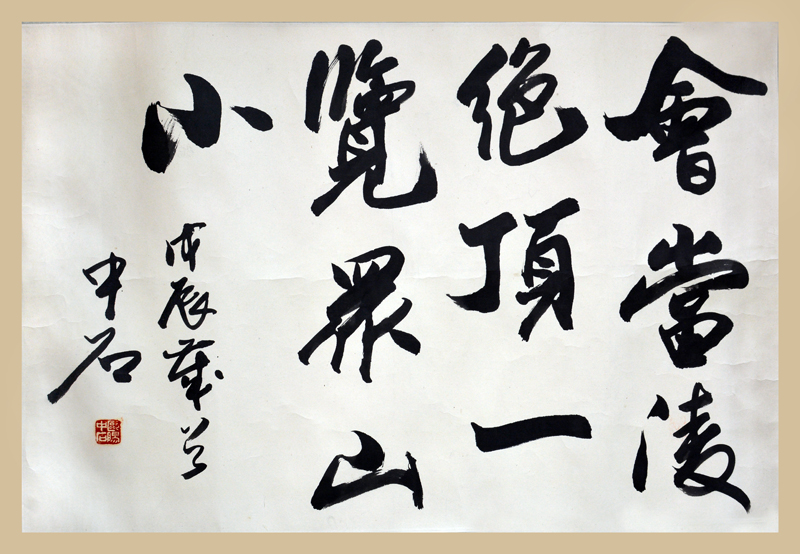 會當凌
絕頂一
覽眾山
小
戊辰歲首
中石
歐陽中石